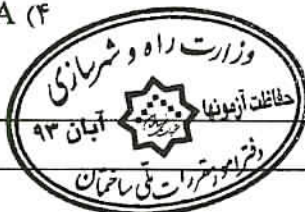 A (۴
وزارت راه و شهرسازی
حفاظت آزمونها
آبان ۹۳
دفتر امور مقررات ملی ساختمان